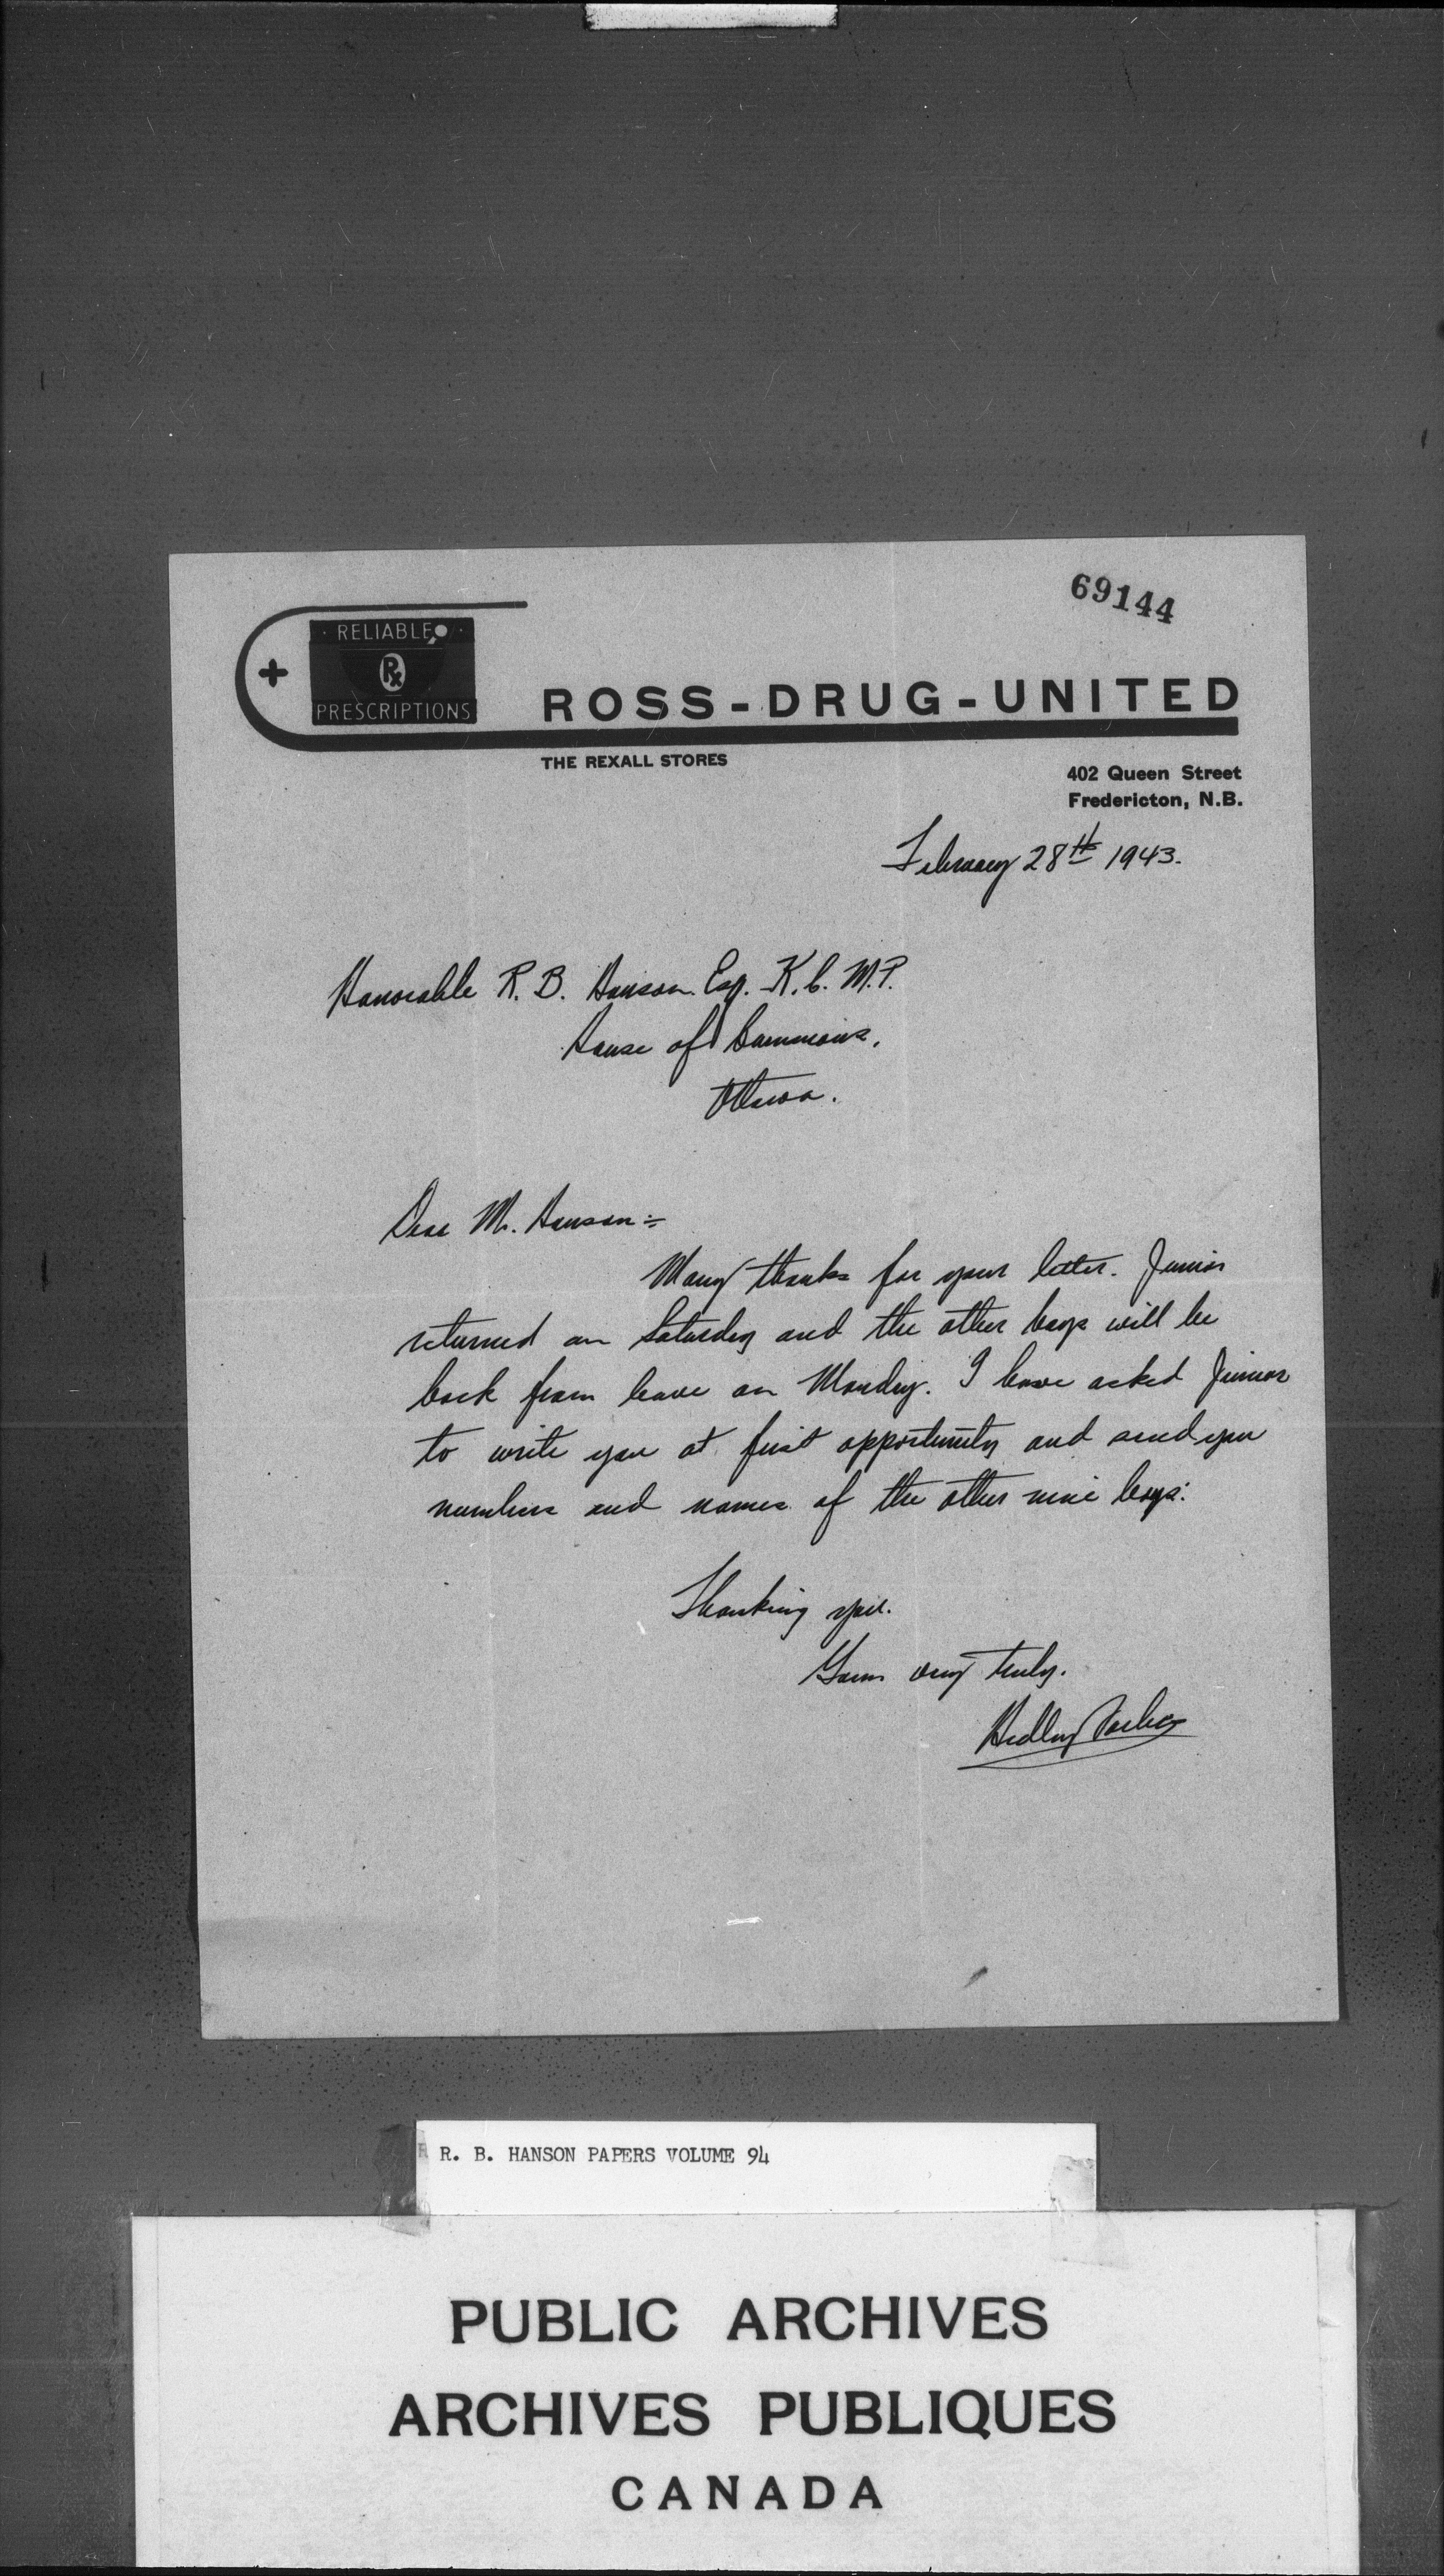 69144
· RELIABLE ·
Rx
PRESCRIPTIONS
+
ROSS-DRUG-UNITED
THE REXALL STORES
402 Queen Street
Fredericton, N.B.
February 28th 1943.
Honorable R. B. Hanson. Esq. K.C. M.P.
House of Commons.
Ottawa.
Dear Mr. Hanson:-
Many thanks for your letter. Junior
returned on Saturday and the other boys will be
back from leave on Monday. I have asked Junior
to write you at first opportunity and send you
numbers and names of the other nine boys.
Thanking you.
Yours very truly.
Hedley
R. B. HANSON PAPERS VOLUME 94
PUBLIC ARCHIVES
ARCHIVES PUBLIQUES
CANADA